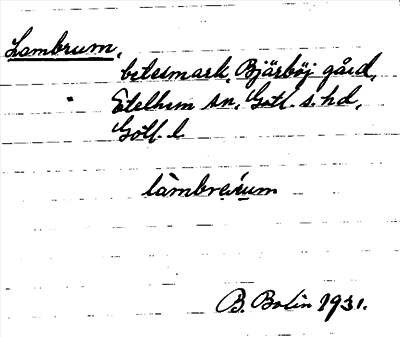 Lambrum,
betesmark, Bjärböj gård,
Etelhem sn, Gotl. s. hd,
Gotl. l.
làmbrerum
B. Bolin 1931.